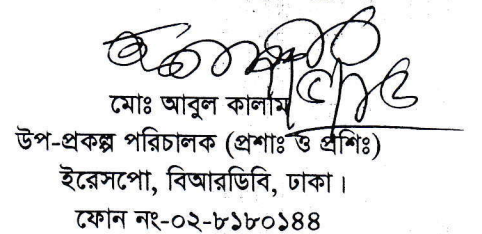 মোঃ আবুল কালাম
উপ-প্রকল্প পরিচালক (প্রশাঃ ও প্রশিঃ)
ইরেসপো, বিআরডিবি, ঢাকা।
ফোন নং-০২-৮১৮০১৪৪